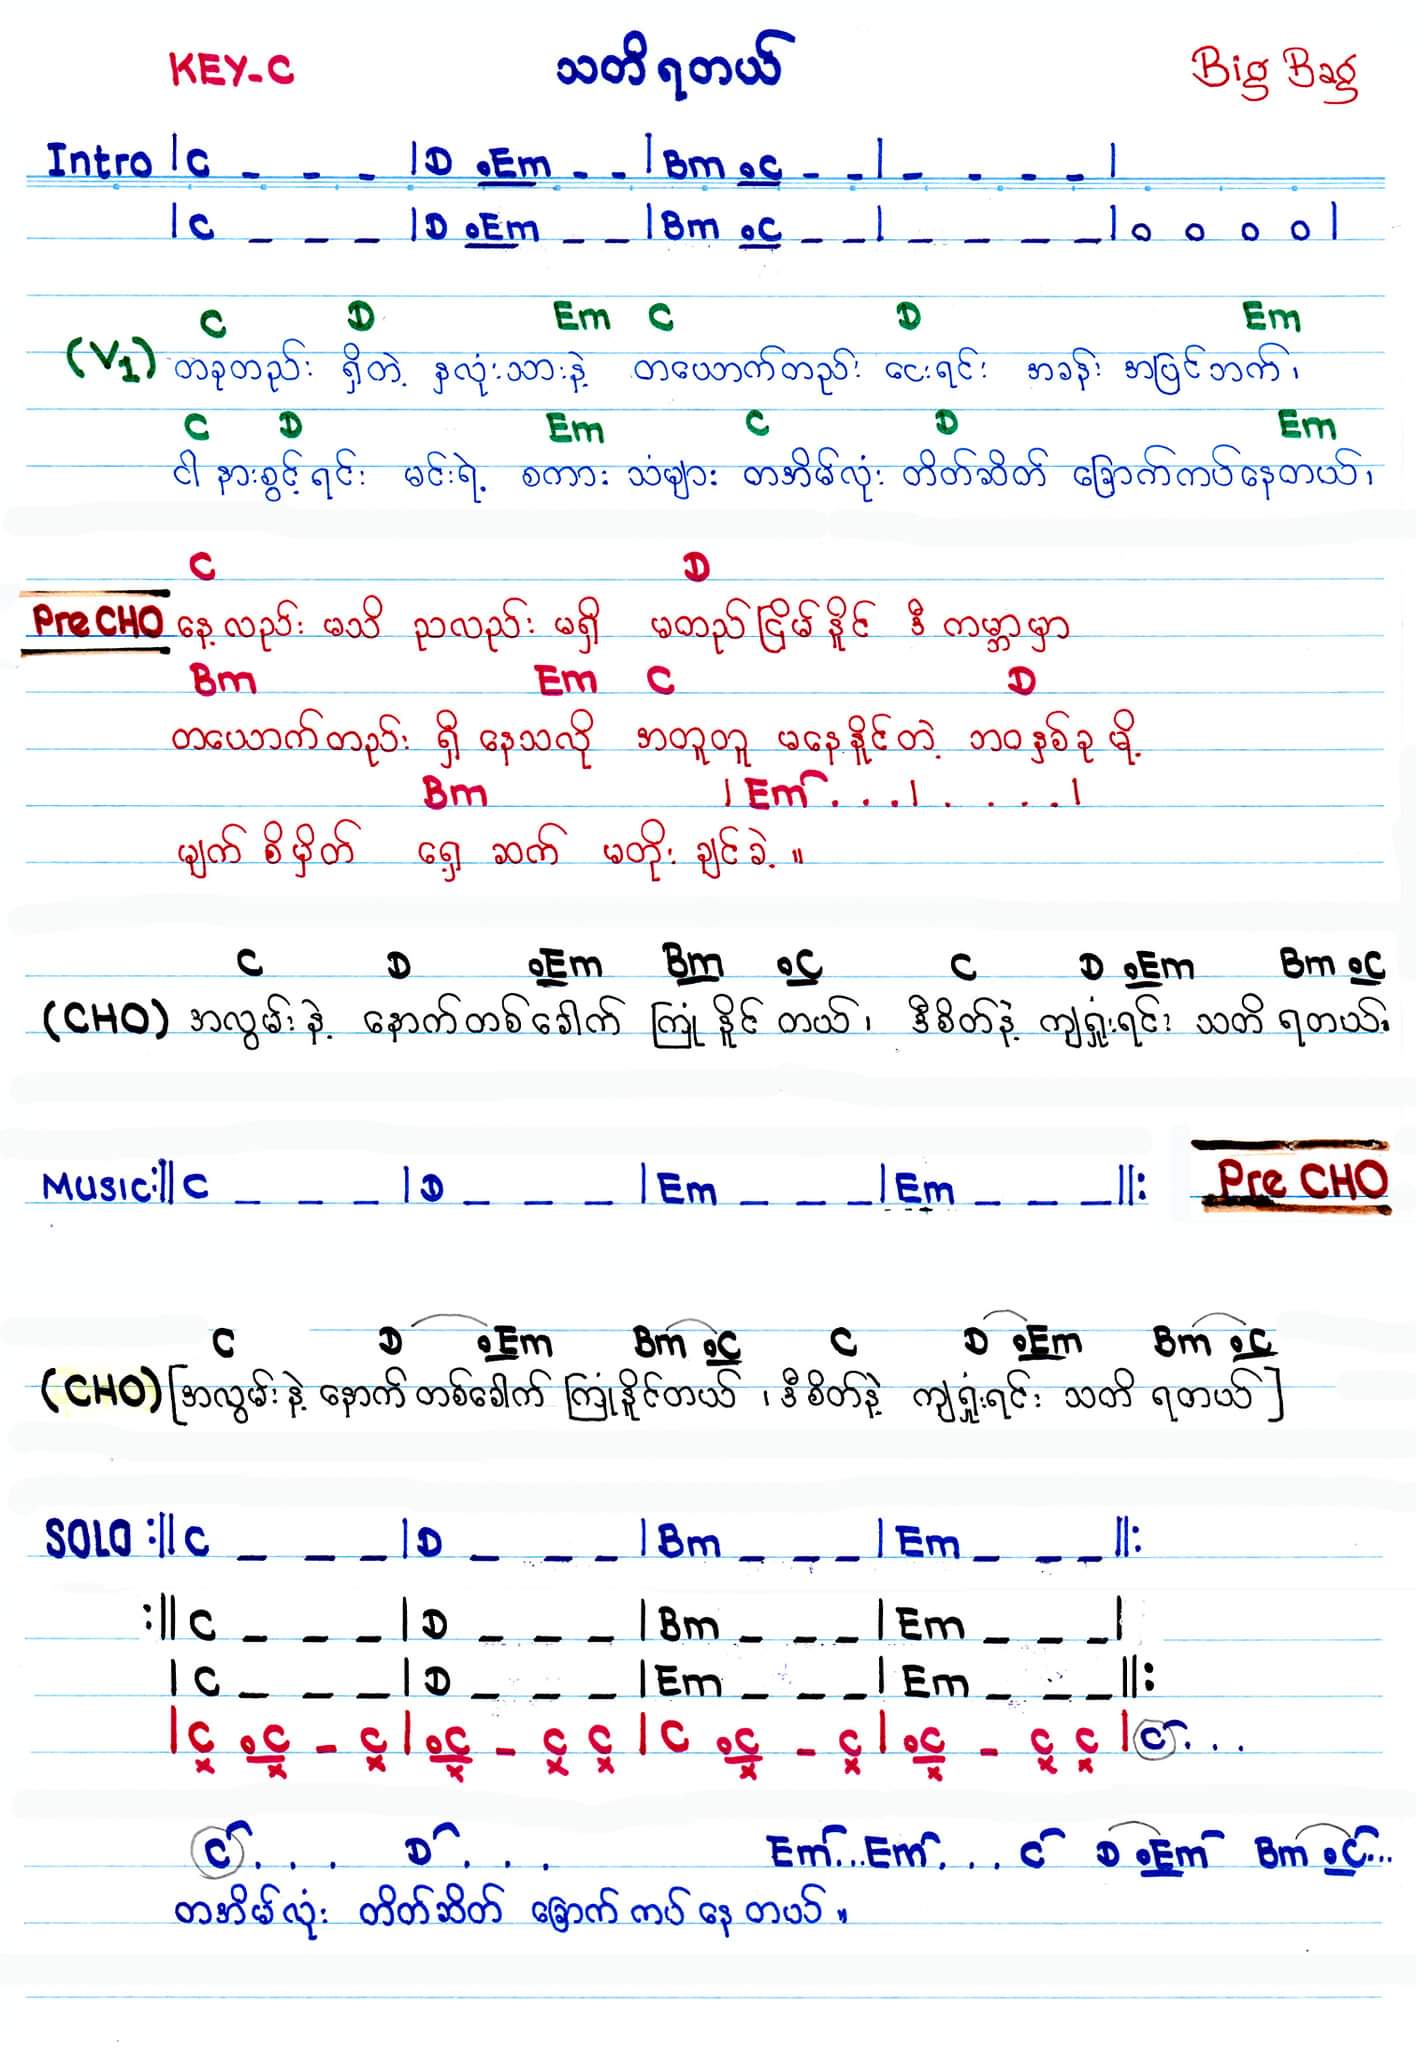 KEY-C သတိရတယ် Big Bag
Intro |C _ _ _ |D .Em _ _ |Bm .C _ _ | _ _ _ _ |
|C _ _ _ |D .Em _ _ |Bm .C _ _ | _ _ _ _ | o o o o |
C D Em C D Em
(V1) တခုတည်း ရှိတဲ့ နှလုံးသားနဲ့ တယောက်တည်း ငေးရင်း အခန်း အပြင်ဘက်၊
C D Em C D Em
ငါ နားစွင့်ရင်း မင်းရဲ့ စကား သံများ တအိမ်လုံး တိတ်ဆိတ် ခြောက်ကပ်နေတယ်၊
C D
Pre CHO နေ့လည်း မသိ ညလည်း မရှိ မတည်ငြိမ်နိူင် ဒီ ကမ္ဘာမှာ
Bm Em C D
တယောက်တည်း ရှိ နေသလို အတူတူ မနေနိူင်တဲ့ ဘဝနှစ်ခု မို့
Bm |Em . . . | . . . . |
မျက်စိမှိတ် ရှေ့ ဆက် မတိုး ချင်ခဲ့ ။
C D .Em Bm .C C D .Em Bm .C
(CHO) အလွမ်းနဲ့ နောက်တစ်ခေါက် ကြုံ နိူင် တယ်၊ ဒီစိတ်နဲ့ ကျရှုံးရင်း သတိ ရတယ်။
MUSIC :||C _ _ _ |D _ _ _ |Em _ _ _ |Em _ _ _ ||: Pre CHO
C D .Em Bm .C C D .Em Bm .C
(CHO) [အလွမ်းနဲ့ နောက်တစ်ခေါက် ကြုံနိူင်တယ် ၊ဒီစိတ်နဲ့ ကျရှုံးရင်း သတိ ရတယ်]
SOLO :||C _ _ _ |D _ _ _ |Bm _ _ _ |Em _ _ _ ||:
:||C _ _ _ |D _ _ _ |Bm _ _ _ |Em _ _ _ |
|C _ _ _ |D _ _ _ |Em _ _ _ |Em _ _ _ ||:
|C .C _ C |.C _ C C |C .C _ C |.C _ C C |C . . .
C . . . D . . . Em...Em . . . C D .Em Bm .C...
တအိမ်လုံး တိတ်ဆိတ် ခြောက်ကပ်နေတယ်။